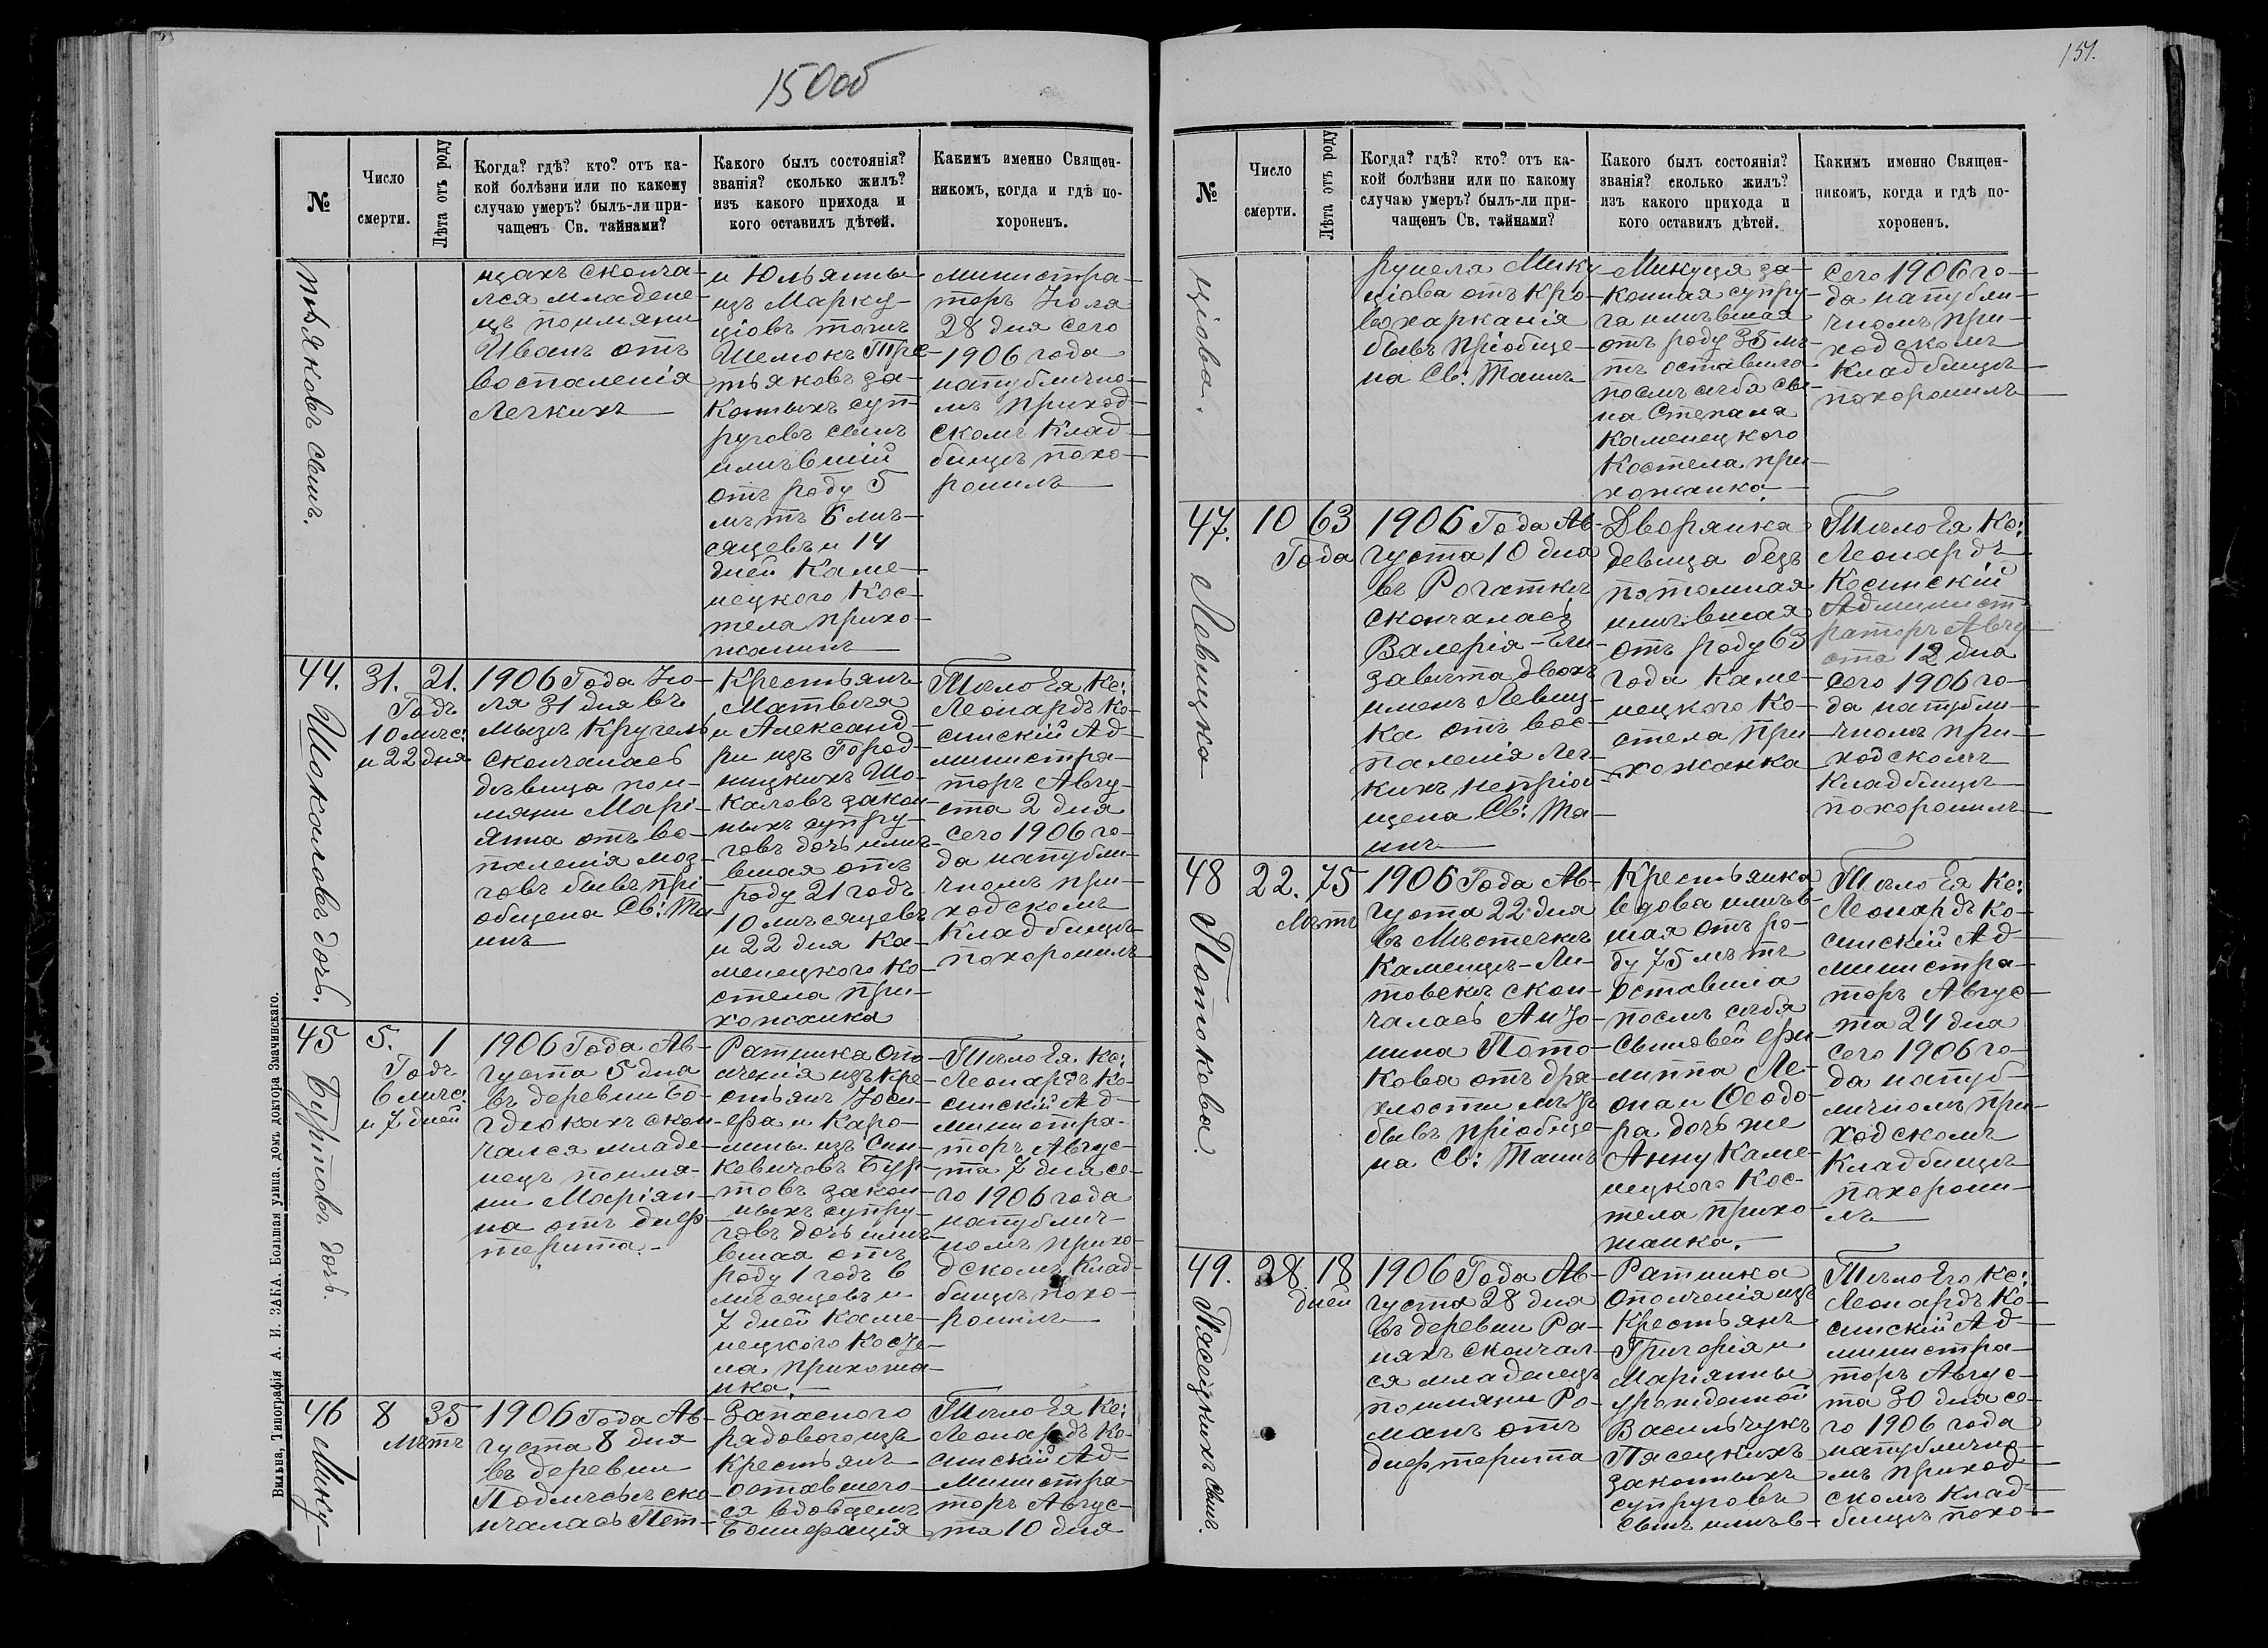 150об
№
Число
смерти.
Лѣта отъ роду
Когда? гдѣ? кто? отъ ка-
кой болѣзни или по какому
случаю умеръ? былъ-ли при-
чащенъ Св. тайнами?
Какого былъ состоянія?
званія? сколько жилъ?
изъ какого прихода и
кого оставилъ дѣтей.
Какимъ именно Священ-
никомъ, когда и гдѣ по-
хороненъ.
тьяковъ сынъ.
щахъ сконча-
лся младене-
цъ поимяни
Иванъ отъ
воспаленія
Легкихъ
и Юльянны
изъ Марку-
ціовъ тожъ
Шемокъ Тре-
тьяковъ за-
конныхъ суп-
руговъ сынъ
имѣвшій
отъ роду 5
лѣтъ 6 мѣ-
сяцевъ и 14
дней Каме-
нецкого Кос-
тела прихо-
жанинъ
министра-
торъ Іюля
28 дня сего
1906 года
напублично-
мъ приход-
скомъ Клад-
бищѣ похо-
ронилъ
44.
Шокаловъ дочь.
31.
21.
Годъ
10 мѣс:
и 22 дня
1906 Года Ію-
ля 31 дня въ
мызѣ Кругель
скончалась
дѣвица пои-
мяни Марі-
Анна отъ во-
паленія моз-
говъ бывъ прі-
общена Св: Та-
инъ
Крестьянъ
Матвѣя
и Александ-
ри изъ Город-
ницкихъ Шо-
каловъ закон-
ныхъ супру-
говъ дочь имѣ-
вшая отъ
роду 21 годъ
10 мѣсяцевъ
и 22 дня Ка-
менецкого Ко-
стела при-
хожанка
Тѣло Ея Кс:
Леонардъ Ко-
синскій Ад-
министра-
торъ Авгу-
ста 2 дня
сего 1906 го-
да напубли-
чномъ при-
ходскомъ
Кладбищѣ
похоронилъ
45
Буртовъ дочь.
5.
1
Годъ
6 мѣс:
и 7 дней
1906 Года Ав-
густа 5 дня
въ деревни Бо-
гдюкахъ скон-
чался младе-
нецъ поимя-
ни Маріян-
на отъ диф-
терита.
Ратника опо-
лченія изъ кре-
стьянъ Іоси-
фа и Каро-
лины изъ Син-
кевичовъ Бур-
товъ закон-
ныхъ супру-
говъ дочь имѣ-
вшая отъ
роду 1 годъ 6
мѣсяцевъ и
7 дней Каме-
нецкого Косте-
ла прихожа-
нка.
Тѣло Ея Кс:
Леонардъ Ко-
синскій Ад-
министра-
торъ Авгус-
та 7 дня се-
го 1906 года
напублич-
номъ прихо-
дскомъ Клад-
бищѣ похо-
ронилъ
46
Мику-
8
35
Лѣтъ
1906 Года Ав-
густа 8 дня
въ деревни
Подлѣсье ско-
нчалась Пет-
Запасного
рядового изъ
Крестьянъ
оставшего-
ся вдовцемъ
Бонифація
Тѣло Ея Кс:
Леонардъ Ко-
синскій Ад-
министра-
торъ Авгус-
та 10 дня
Вильна, Типографія А. И. ЗАКА. Большая улица, домъ доктора Змачинскаго.
151.
№
Число
смерти.
Лѣта отъ роду
Когда? гдѣ? кто? отъ ка-
кой болѣзни или по какому
случаю умеръ? былъ-ли при-
чащенъ Св. тайнами?
Какого былъ состоянія?
званія? сколько жилъ?
изъ какого прихода и
кого оставилъ дѣтей.
Какимъ именно Священ-
никомъ, когда и гдѣ по-
хороненъ.
ціова.
рунела Мику-
ціова отъ Кро-
вохарканія
бывъ пріобще-
на Св: Таинъ
Микуця за-
конная супру-
га имѣвшая
отъ роду 35 лѣ-
тъ оставила
послѣ себя сы-
на Степана
Каменецкого
Костела при-
хожанка.
сего 1906 го-
да напубли-
чномъ при-
ходскомъ
Кладбищѣ
похоронилъ
47.
Левицка
10
63
Года
1906 Года Ав-
густа 10 дня
въ Рогаткѣ
скончалась
Валерія-Ели-
завѣта двохъ
именъ Левиц-
ка отъ вос-
паленія Лег-
кихъ непріоб-
щена Св: Та-
инъ
Дворянка
девица безъ
потомная
имѣвшая
отъ роду 63
года Каме-
нецкого Ко-
стела при-
хожанка
Тѣло Ея Кс:
Леонардъ
Косинскій
Админист-
раторъ Авгу-
ста 12 дня
сего 1906 го-
да напубли-
чномъ при-
ходскомъ
Кладбищѣ
похоронилъ
48
Потокова.
22.
75
Лѣтъ
1906 Года Ав-
густа 22 дня
въ Мѣстечкѣ
Каменцѣ-Ли-
товскѣ скон-
чалась Анто-
нина Пото-
кова отъ дря-
хлости лѣтъ
бывъ пріобще-
на Св: Таинъ
Крестьянка
вдова имѣв-
шая отъ ро-
ду 75 лѣтъ
оставила
послѣ себя
сыновей Фи-
липпа Ле-
она и Ѳеодо-
ра дочь же
Анну Каме-
нецкого Кос-
тела прихо-
жанка.
Тѣло Ея Кс:
Леонардъ Ко-
синскій Ад-
министра-
торъ Авгус-
та 24 дня
сего 1906 го-
да напуб-
личномъ при-
ходскомъ
Кладбищѣ
похорони-
лъ
49.
Пясецкихъ сынъ.
28
18
дней
1906 Года Ав-
густа 28 дня
въ деревни Ра-
няхъ скончал-
ся младенецъ
поимяни Ро-
манъ отъ
дифтерита
Ратника
Ополченія изъ
Крестьянъ
Григорія и
Маріянны
урожденной
Васильчукъ
Пясецкихъ
законныхъ
супруговъ
сынъ имѣв-
Тѣло Его Кс:
Леонардъ Ко-
синскій Ад-
министра-
торъ Авгус-
та 30 дня се-
го 1906 года
напублично-
мъ приход-
скомъ Клад-
бищѣ похо-